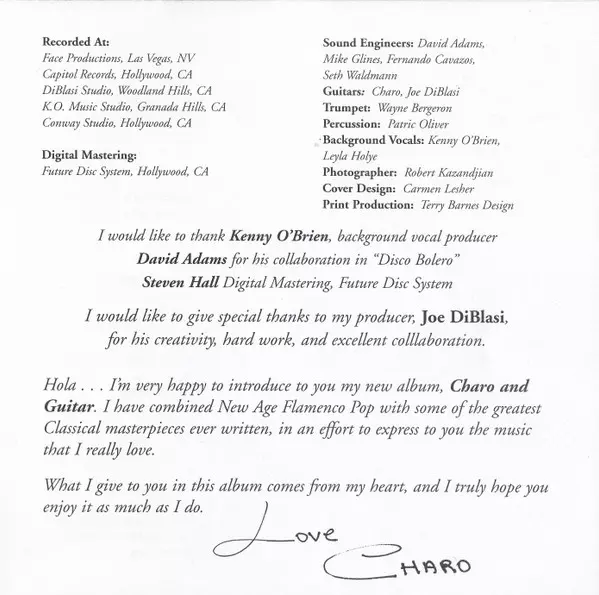 Recorded At:
Face Productions, Las Vegas, NV
Capitol Records, Hollywood, CA
DiBlasi Studio, Woodland Hills, CA
K.O. Music Studio, Granada Hills, CA
Conway Studio, Hollywood, CA
Digital Mastering:
Future Disc System, Hollywood, CA
Sound Engineers: David Adams,
Mike Glines, Fernando Cavazos,
Seth Waldmann
Guitars: Charo, Joe DiBlasi
Trumpet: Wayne Bergeron
Percussion: Patric Oliver
Background Vocals: Kenny O'Brien,
Leyla Holye
Photographer: Robert Kazandjian
Cover Design: Carmen Lesher
Print Production: Terry Barnes Design
I would like to thank Kenny O'Brien, background vocal producer
David Adams for his collaboration in "Disco Bolero"
Steven Hall Digital Mastering, Future Disc System
I would like to give special thanks to my producer, Joe DiBlasi,
for his creativity, hard work, and excellent colllaboration.
Hola . . . I'm very happy to introduce to you my new album, Charo and
Guitar. I have combined New Age Flamenco Pop with some of the greatest
Classical masterpieces ever written, in an effort to express to you the music
that I really love.
What I give to you in this album comes from my heart, and I truly hope you
enjoy it as much as I do.
Love
CHARO